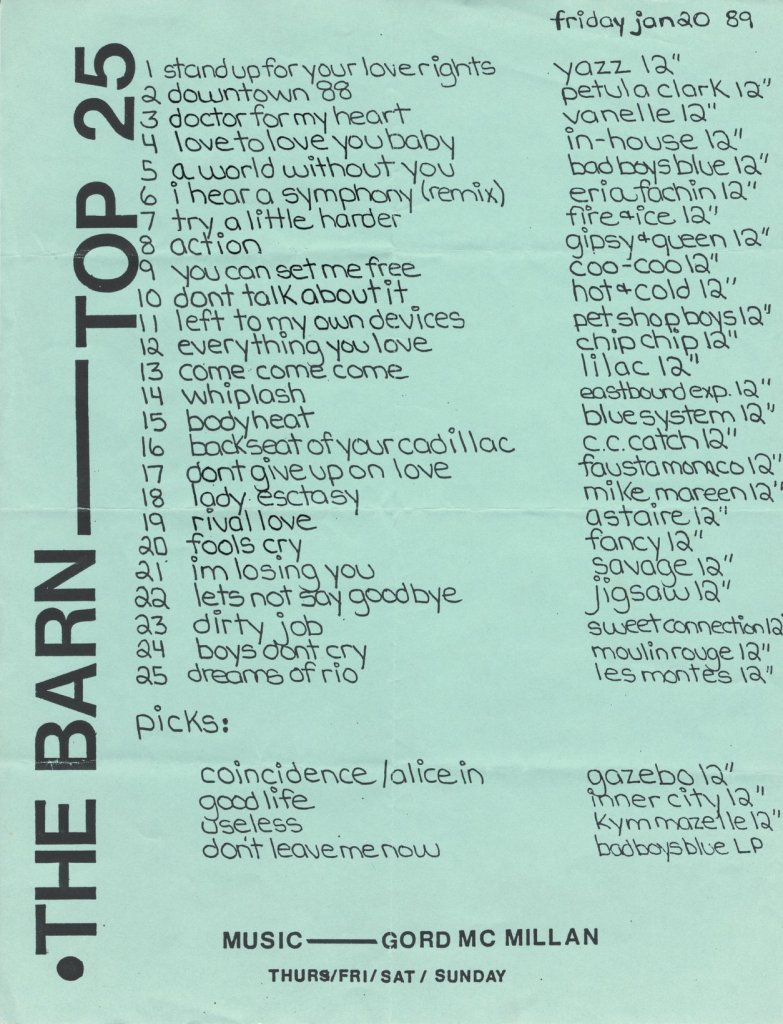 friday jan 20 89
•THE BARN—TOP 25
1 stand up for your love rights yazz 12"
2 downtown '88 petula clark 12"
3 doctor for my heart vanelle 12"
4 love to love you baby in-house 12"
5 a world without you bad boys blue 12"
6 i hear a symphony (remix) eria fachin 12"
7 try a little harder fire & ice 12"
8 action gipsy & queen 12"
9 you can set me free coo-coo 12"
10 dont talk about it hot & cold 12"
11 left to my own devices pet shop boys 12"
12 everything you love chip chip 12"
13 come come come lilac 12"
14 whiplash eastbound exp. 12"
15 bodyheat blue system 12"
16 backseat of your cadillac c.c. catch 12"
17 dont give up on love fausta monaco 12"
18 lady esctasy mike mareen 12"
19 rival love astaire 12"
20 fools cry fancy 12"
21 im losing you savage 12"
22 lets not say goodbye jigsaw 12"
23 dirty job sweet connection 12"
24 boys dont cry moulin rouge 12"
25 dreams of rio les montes 12"
picks:
coincidence/alice in gazebo 12"
good life inner city 12"
useless kym mazelle 12"
don't leave me now bad boys blue LP
MUSIC—GORD MC MILLAN
THURS/FRI/SAT/SUNDAY